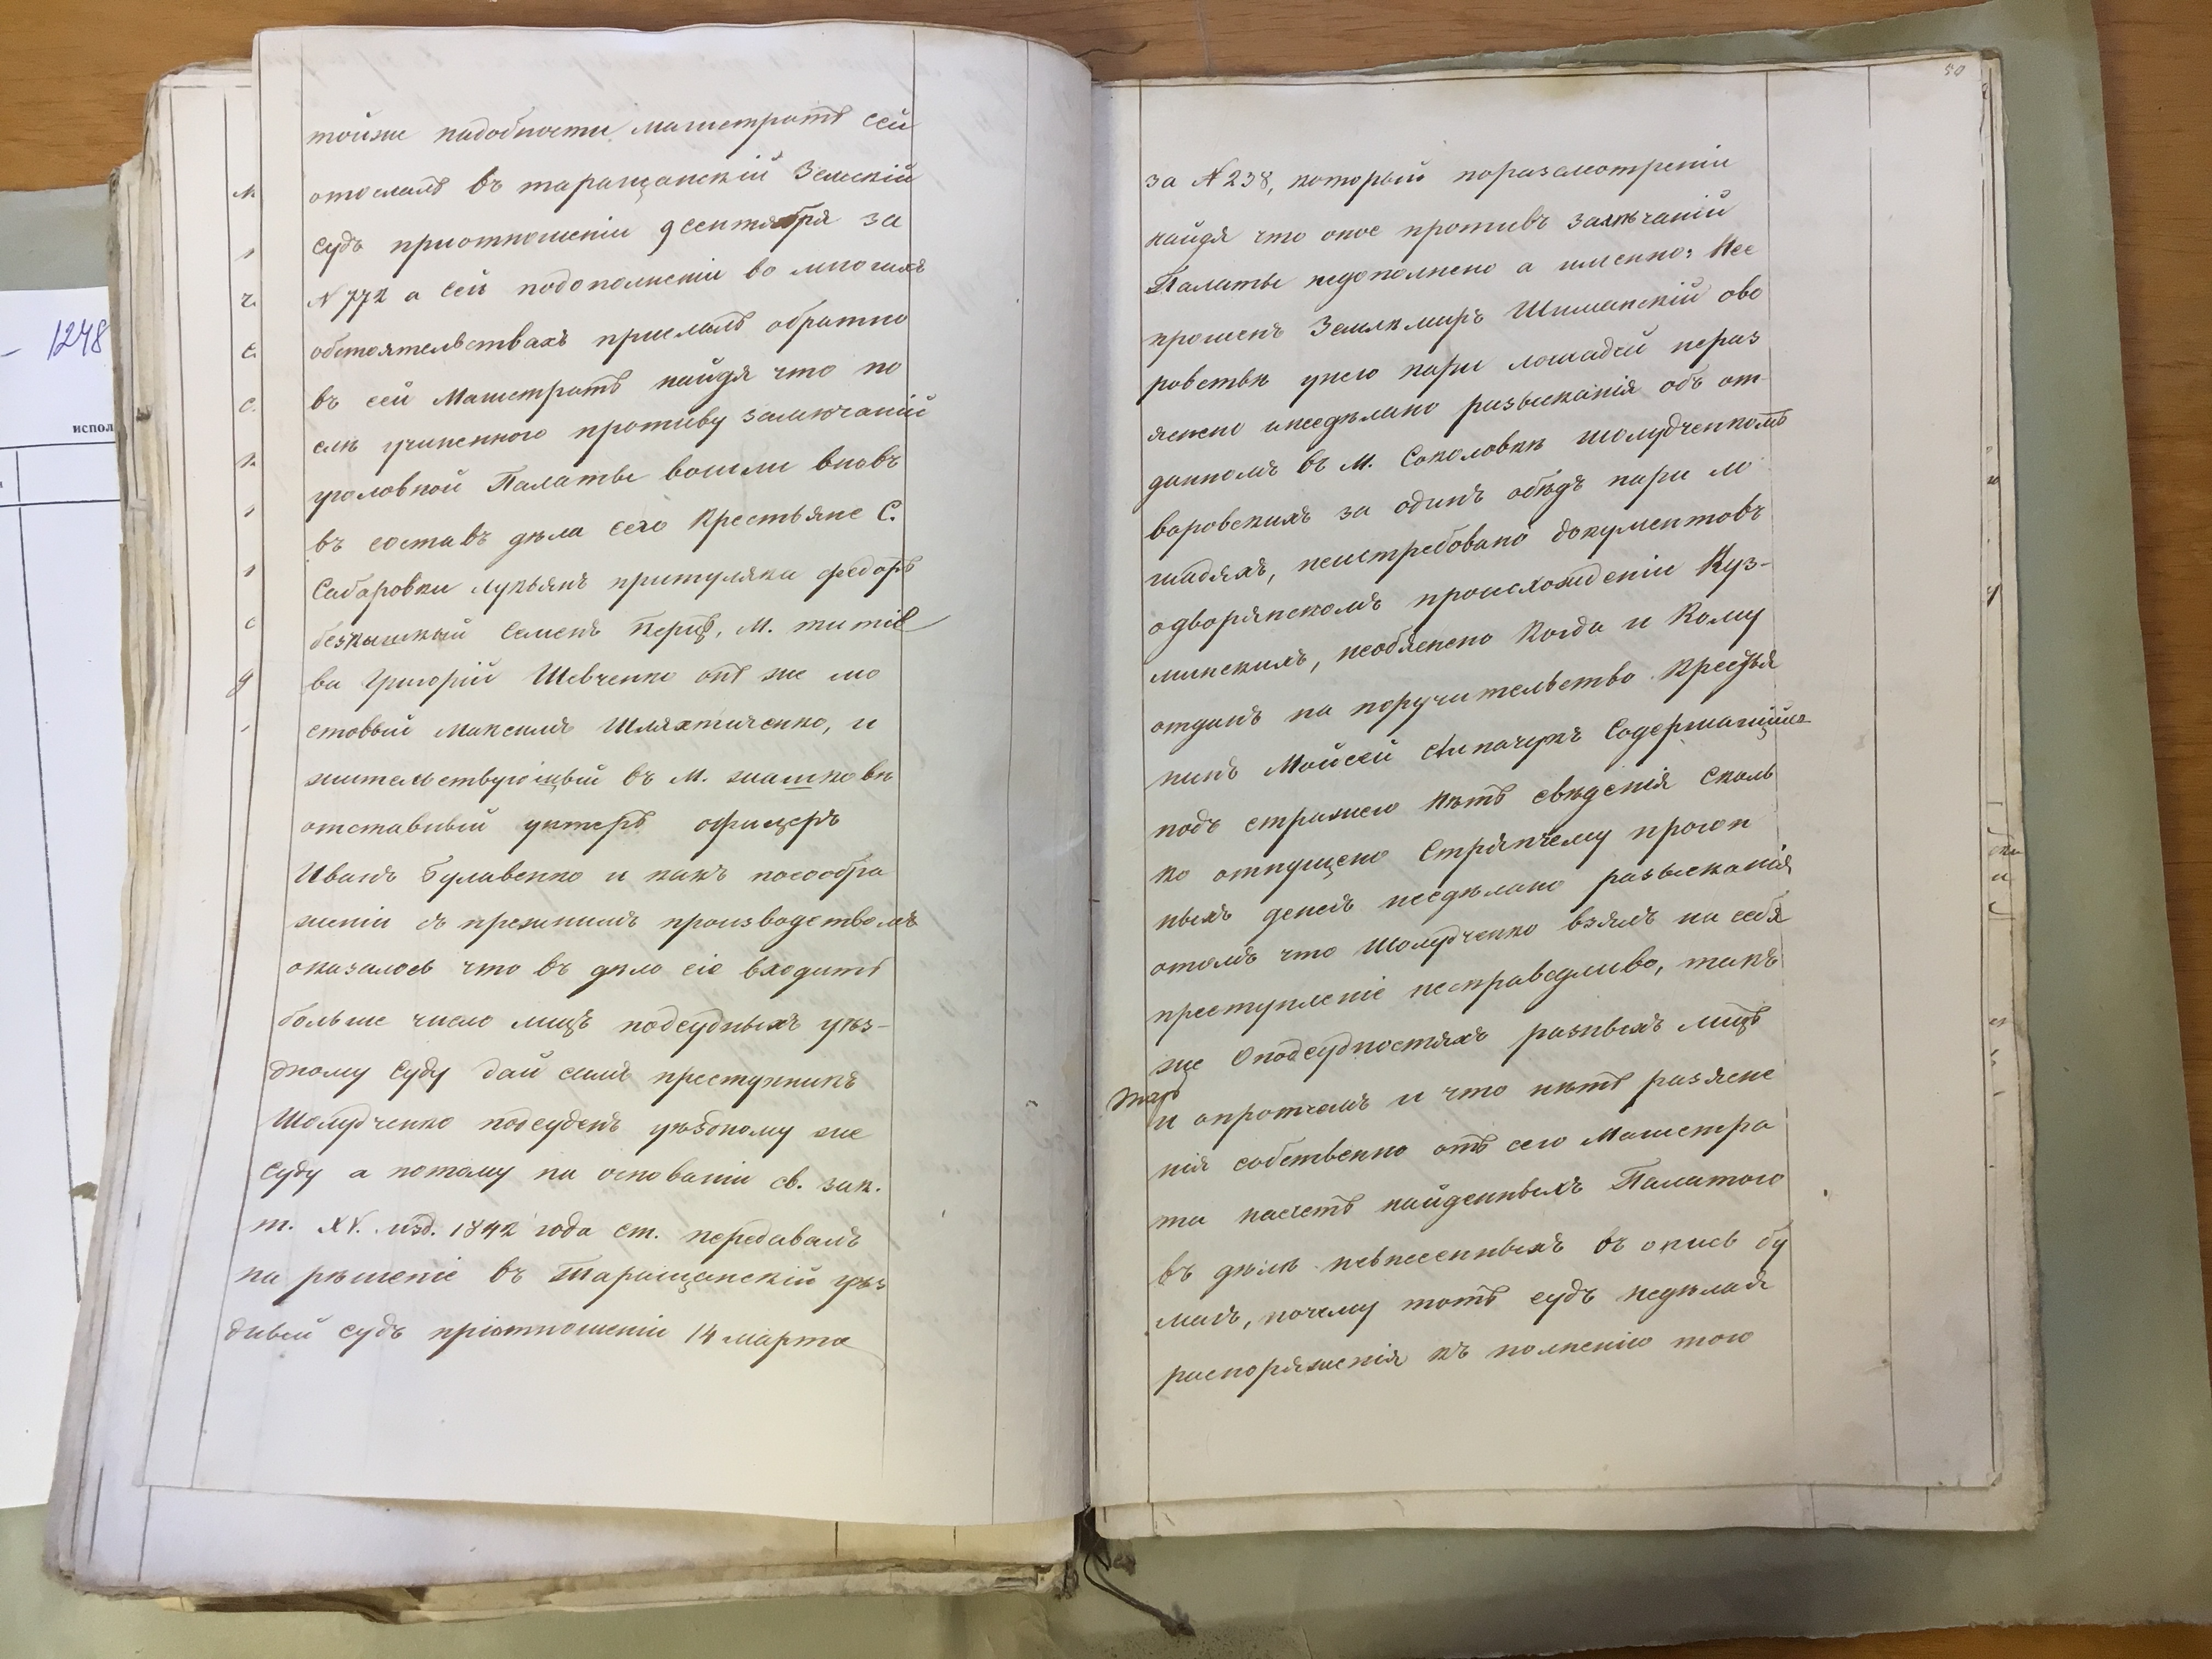 1248
испол
тойже надобности магистратъ сей
отослалъ въ таращанскій Земскій
судъ приотношеніи 9 сентября за
N 772 а сей подополненіи во многихъ
обстоятельствахъ прислалъ обратно
въ сей Магистратъ найдя что по
слѣ учиненного противу замѣчаній
уголовной Палаты вошли вновь
въ составъ дѣла сего Крестьяне С.
Сабаровки лукьянъ притуляка федоръ
безкышкый Семенъ Перцъ, М. титіе
ва Григорій Шевченко онъ же мо
стовый Максимъ Шляхтиченко, и
жительствующый въ М. жашковѣ
отставный унтеръ офицеръ
Иванъ Булавенко и какъ посообра
женіи съ прежнимъ производствомъ
оказалось что въ дѣло сіе входитъ
больше число лицъ подсудныхъ уѣз-
дному Суду дай самъ преступникъ
Шолудченко подсуденъ уѣздному же
Суду а потому на основаніи св. зак.
т. XV. изд. 1842 года ст. передавалъ
на рѣшеніе въ Таращанскій уѣз
дный судъ приотношеніи 14 марта
50
за N 238, который поразсмотреніи
найдя что оное противъ замѣчаній
Палаты недополнено а именно: Нес
прошенъ Землемиръ Шиманскій ово
ровствѣ унего пары лошадей нераз
яснено инесдѣлано развысканія объ от-
данномъ въ М. Соколовкѣ шолудченкомъ
воровскихъ за одинъ обѣдъ пары ло
шадяхъ, неистребовано документовъ
одворянскомъ происхожденіи Куз-
минскихъ, необяснено Когда и Кому
отданъ на поручительство Крестья
нинъ Мойсей Содержащійся
подъ стражею нѣтъ свѣденія сколь
ко отпущено Стряпчему прогон
ныхъ денегъ несдѣлано развысканія
отомъ что Шолудченко взялъ на себя
преступленіе несправедливо, такъ
же Оподсудностяхъ разныхъ лицъ
и опротчемъ и что нѣтъ разясне
нія собственно отъ сего Магистра
та насчетъ найденныхъ Палатою
въ дѣлѣ невнесенныхъ въ опись бу
магъ, почему тотъ судъ недѣлая
распоряженія къ полненію того